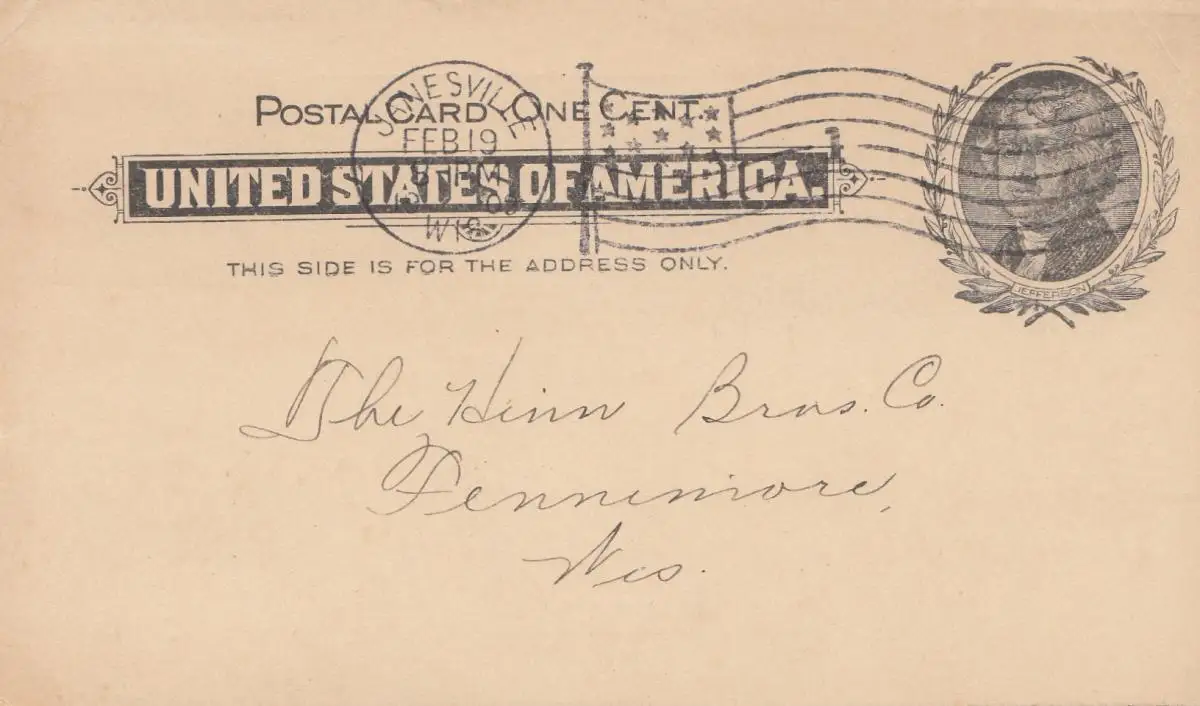 POSTAL CARD ONE CENT.
JANESVILLE
FEB 19
WIS
UNITED STATES OF AMERICA.
THIS SIDE IS FOR THE ADDRESS ONLY.
JEFFERSON
The Hinn Bros. Co.
Fennimore,
Wis.